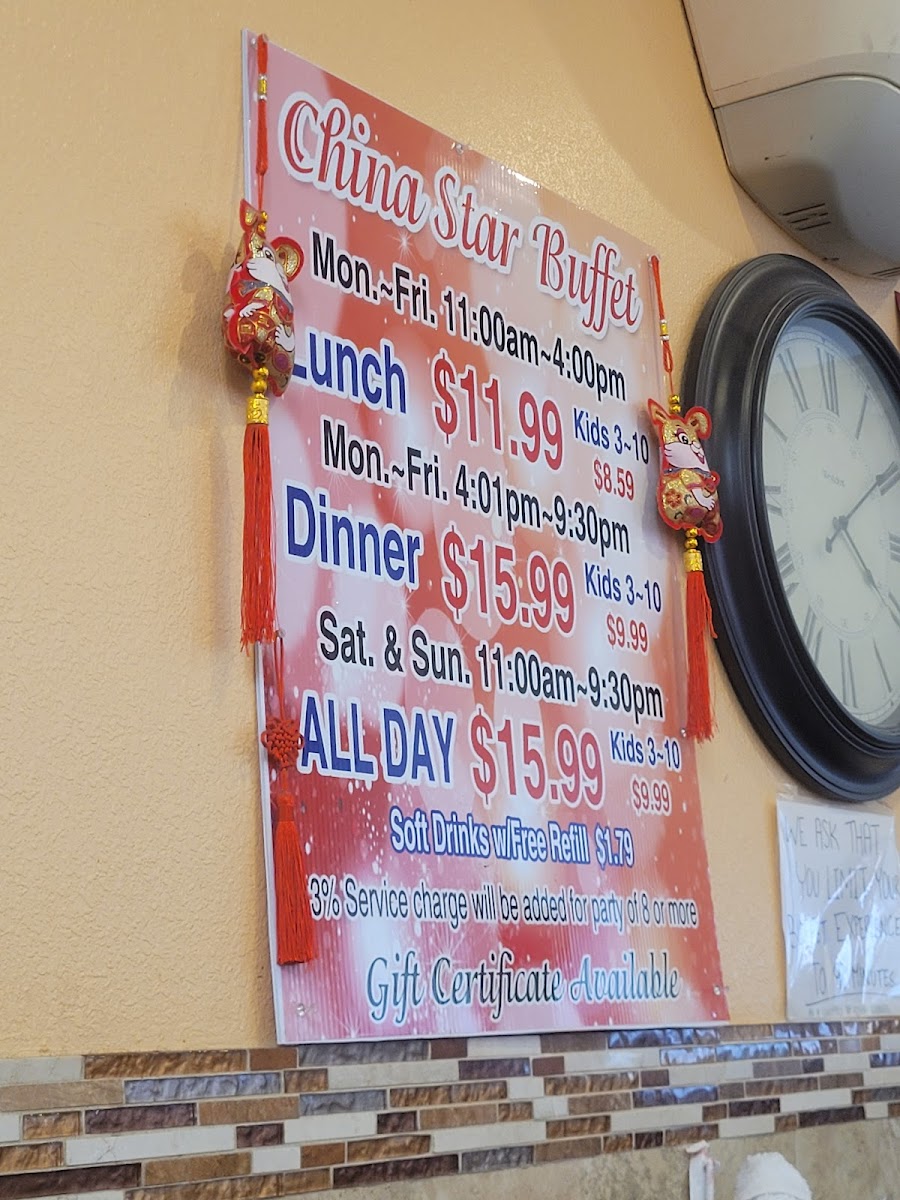 China Star Buffet
Mon.~Fri. 11:00am~4:00pm
Lunch $11.99 Kids 3~10
$8.59
Mon.~Fri. 4:01pm~9:30pm
Dinner $15.99 Kids 3~10
$9.99
Sat. & Sun. 11:00am~9:30pm
ALL DAY $15.99 Kids 3~10
$9.99
Soft Drinks w/Free Refill $1.79
3% Service charge will be added for party of 8 or more
Gift Certificate Available
WE ASK THAT
YOU LIMIT YOUR
EXPERIENCE
TO MINUTES